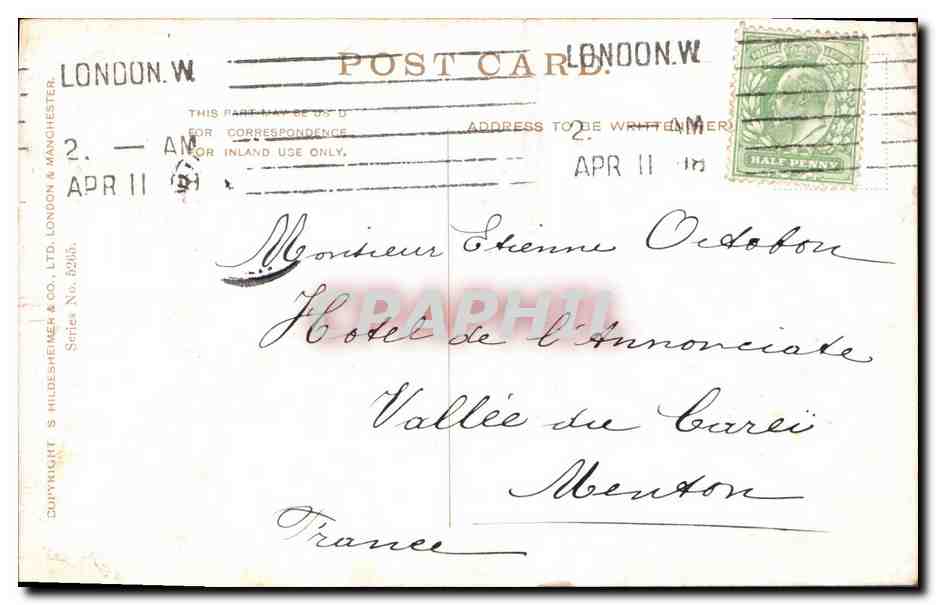 POST CARD.
LONDON.W
2. — AM
APR 11
LONDON.W
2. — AM
APR 11
THIS PART MAY BE USED
FOR CORRESPONDENCE
FOR INLAND USE ONLY.
ADDRESS TO BE WRITTEN HERE
HALF PENNY
COPYRIGHT S HILDESHEIMER & CO., LTD. LONDON & MANCHESTER.
Series No. 5265.
Monsieur Etienne Octobon
Hotel de l'Annonciate
Vallée du Careï
Menton
France
CPAPHIL